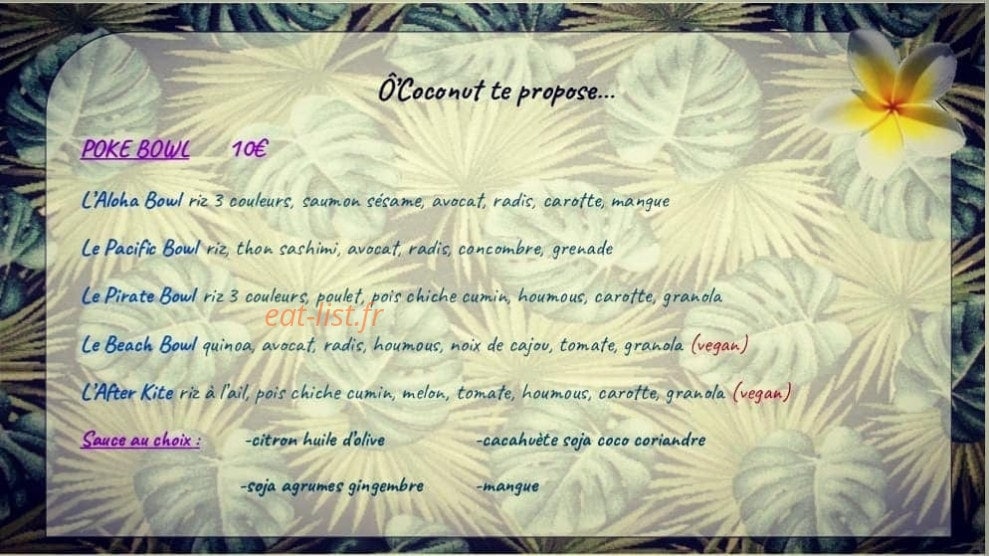 Ô'Coconut te propose...
POKE BOWL 10€
L'Aloha Bowl riz 3 couleurs, saumon sésame, avocat, radis, carotte, mangue
Le Pacific Bowl riz, thon sashimi, avocat, radis, concombre, grenade
Le Pirate Bowl riz 3 couleurs, poulet, pois chiche cumin, houmous, carotte, granola
eat-list.fr
Le Beach Bowl quinoa, avocat, radis, houmous, noix de cajou, tomate, granola (vegan)
L'After Kite riz à l'ail, pois chiche cumin, melon, tomate, houmous, carotte, granola (vegan)
Sauce au choix : -citron huile d'olive -cacahuète soja coco coriandre
-soja agrumes gingembre -mangue